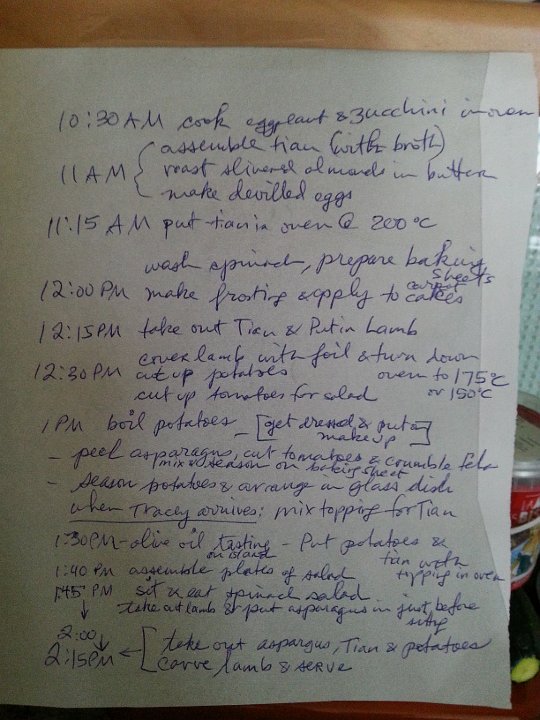 10:30 AM cook eggplant & zucchini in oven
assemble tian (with broth)
11 AM { roast slivered almonds in butter
make devilled eggs
11:15 AM put tian in oven @ 200°C
wash spinach, prepare baking sheets
12:00 PM make frosting & apply to carrot cakes
12:15PM take out Tian & Put in Lamb
cover lamb with foil & turn down
12:30 PM cut up potatoes oven to 175°C
cut up tomatoes for salad or 150°C
1 PM boil potatoes - [get dressed & put on
makeup]
- peel asparagus, cut tomatoes & crumble feta
mix & season on baking sheet
- season potatoes & arrange in glass dish
when Tracey arrives: mix topping for Tian
1:30PM - olive oil tasting - Put potatoes &
on island tian with
1:40 PM assemble plates of salad topping in oven
1:45 PM sit & eat spinach salad
take out lamb & put asparagus in just before
sitting
2:00
2:15PM ← [take out aspargus, Tian & potatoes
carve lamb & serve